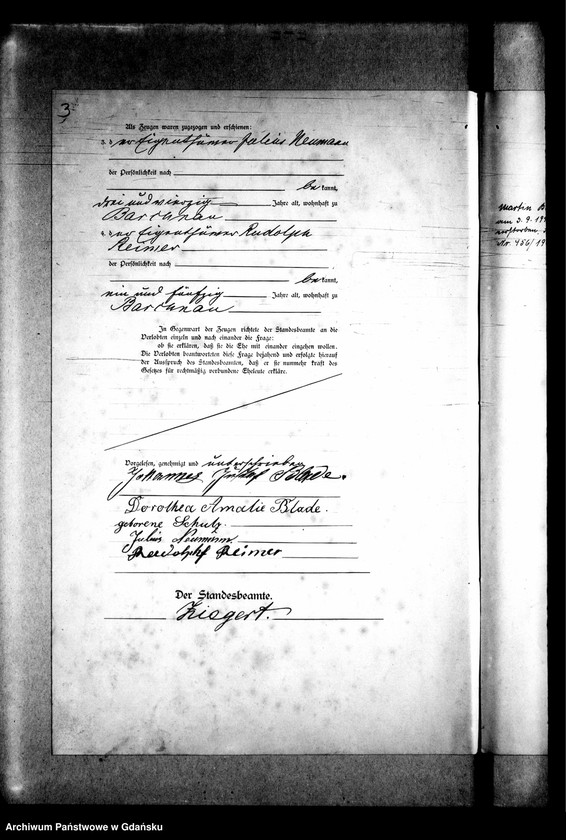 3.
Als Zeugen waren zugezogen und erschienen:
3. der Eigenthümer Julius Neumann
der Persönlichkeit nach
bekannt,
drei und vierzig Jahre alt, wohnhaft zu
Barchnau
4. der Eigenthümer Rudolph
Reimer
der Persönlichkeit nach
bekannt,
ein und fünfzig Jahre alt, wohnhaft zu
Barchnau
In Gegenwart der Zeugen richtete der Standesbeamte an die
Verlobten einzeln und nach einander die Frage:
ob sie erklären, daß sie die Ehe mit einander eingehen wollen.
Die Verlobten beantworteten diese Frage bejahend und erfolgte hierauf
der Ausspruch des Standesbeamten, daß er sie nunmehr kraft des
Gesetzes für rechtmäßig verbundene Eheleute erkläre.
Vorgelesen, genehmigt und unterschrieben
Johannes Gustaf Blade.
Dorothea Amalie Blade.
geborene Schulz.
Julius Neumann.
Rudolph Reimer
Der Standesbeamte.
Ziegert.
Martin B
am 3. 9. 19
verstorben
Nr. 456/19
Archiwum Państwowe w Gdańsku